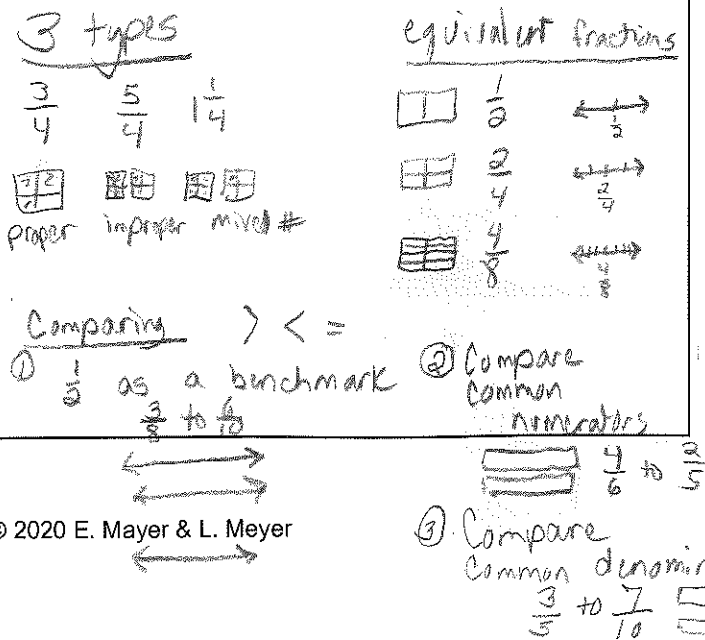 3 types
3/4 5/4 1 1/4
proper improper mixed #
equivalent fractions
1/2 1/2
2/4 2/4
4/8 4/8
Comparing > < =
① 1/2 as a benchmark
3/8 to 6/10
② Compare
common
numerators
4/6 to
© 2020 E. Mayer & L. Meyer
③ Compare
common
3/5 to 7/10